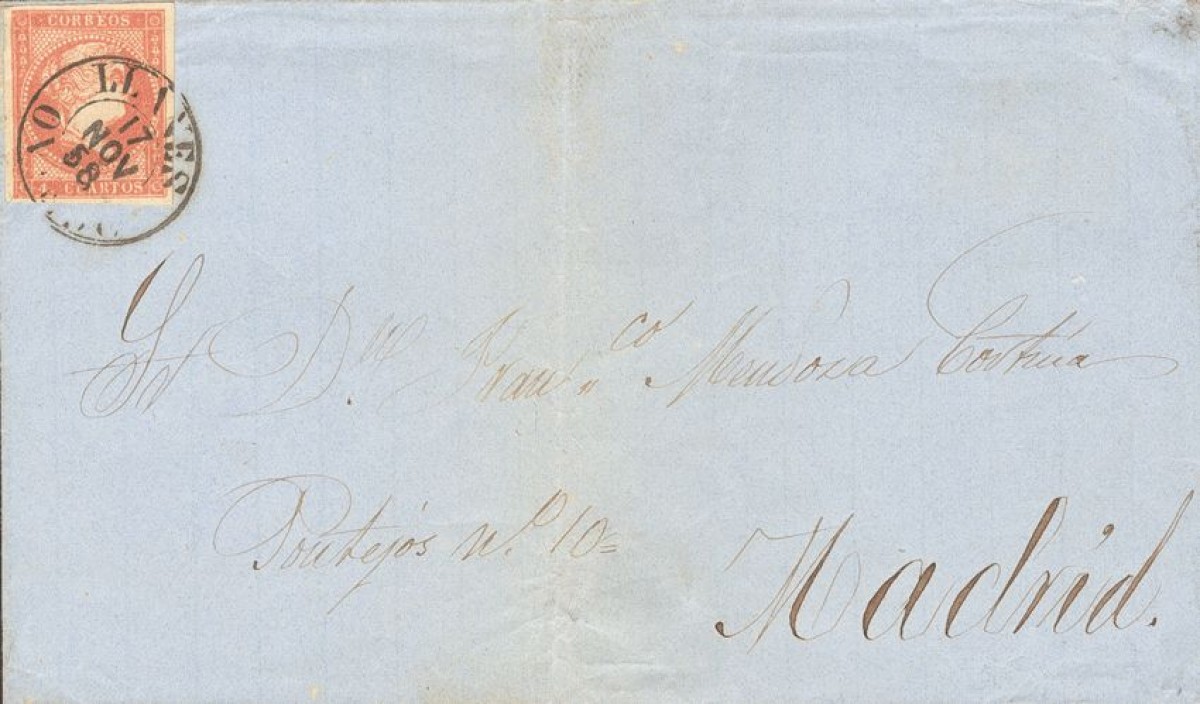 CORREOS
LLANES
10
17
NOV
58
4 CUARTOS
Sr Dn. Franco Mendoza Cortina
Pontejos no. 10=
Madrid.